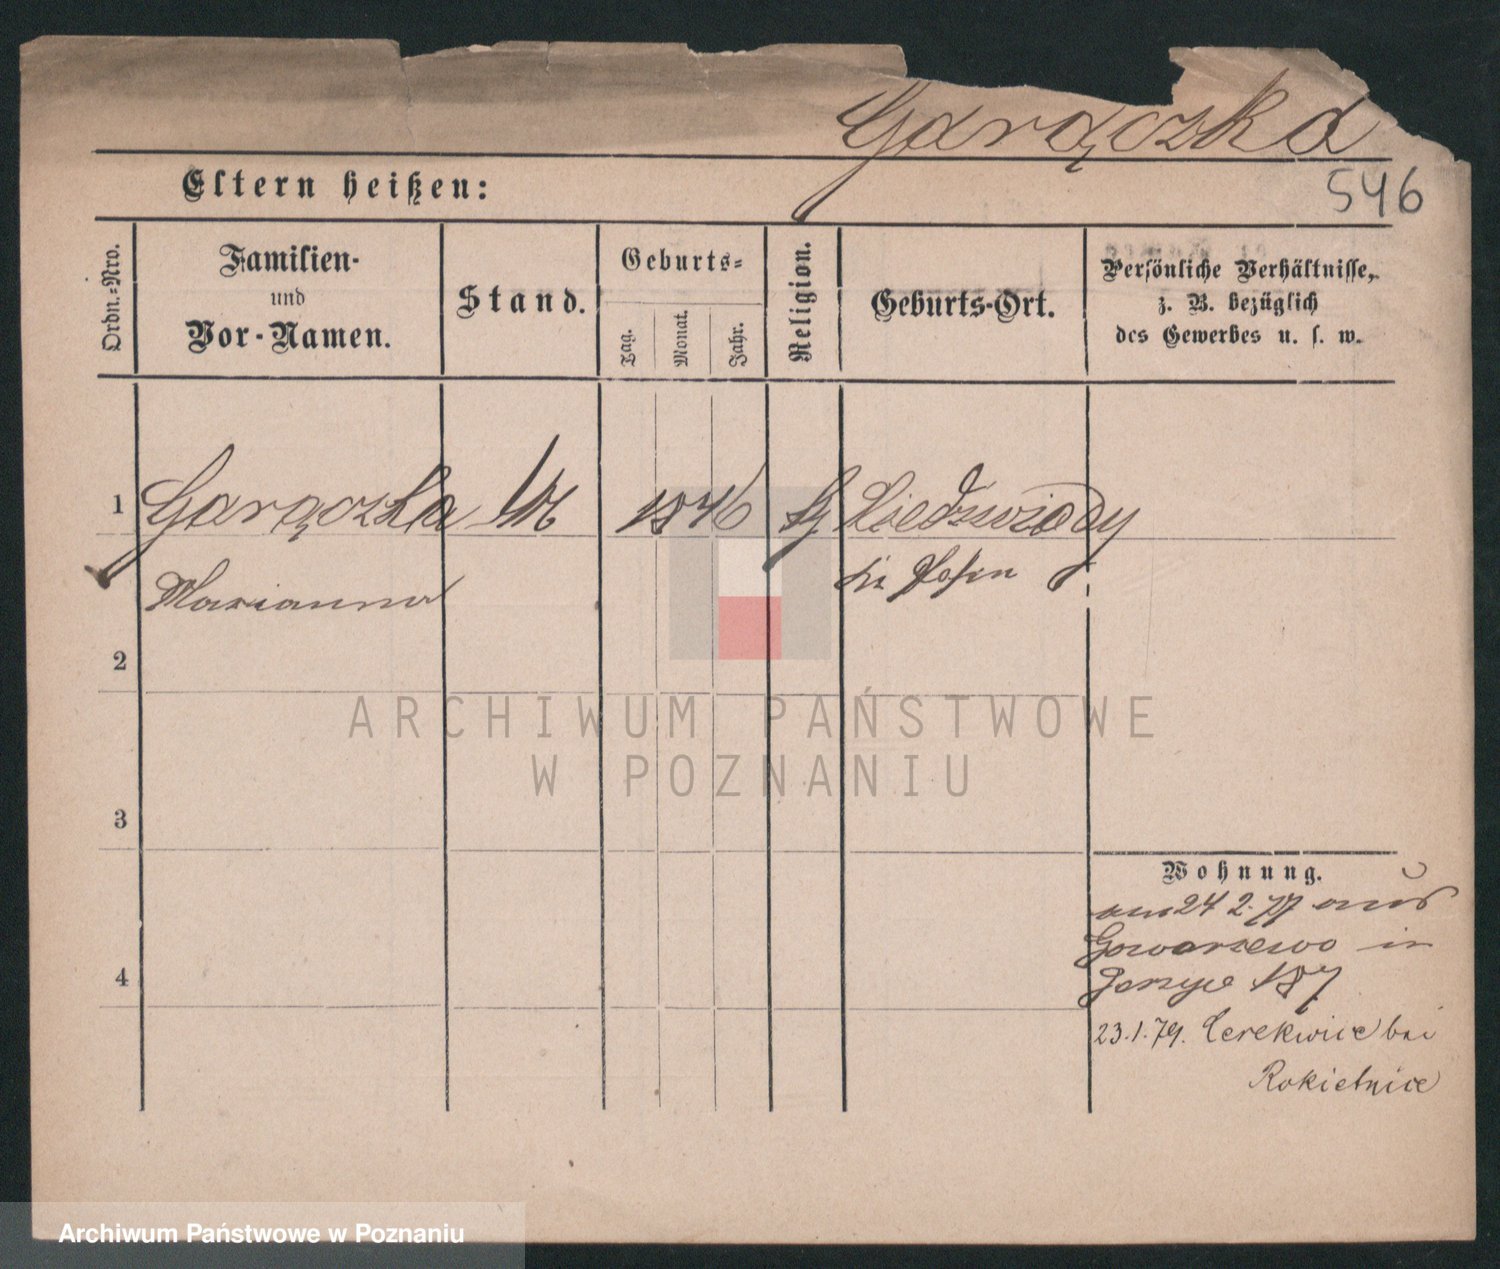 Garączka
Eltern heißen:
546
Ordn.-Nro.
Familien-
und
Vor-Namen.
Stand.
Geburts-
Tag.
Monat.
Jahr.
Religion.
Geburts-Ort.
Persönliche Verhältnisse,
z. B. bezüglich
des Gewerbes u. s. w.
1
Garączka
1846
Niedzwiady
Kr. Posen
Marianna
2
ARCHIWUM PAŃSTWOWE
W POZNANIU
3
Wohnung.
am 24 2. 77 aus
Gowarzewo in
4
Jerzyce 187
23.1.79. Cerekwice bei
Rokietnice
Archiwum Państwowe w Poznaniu